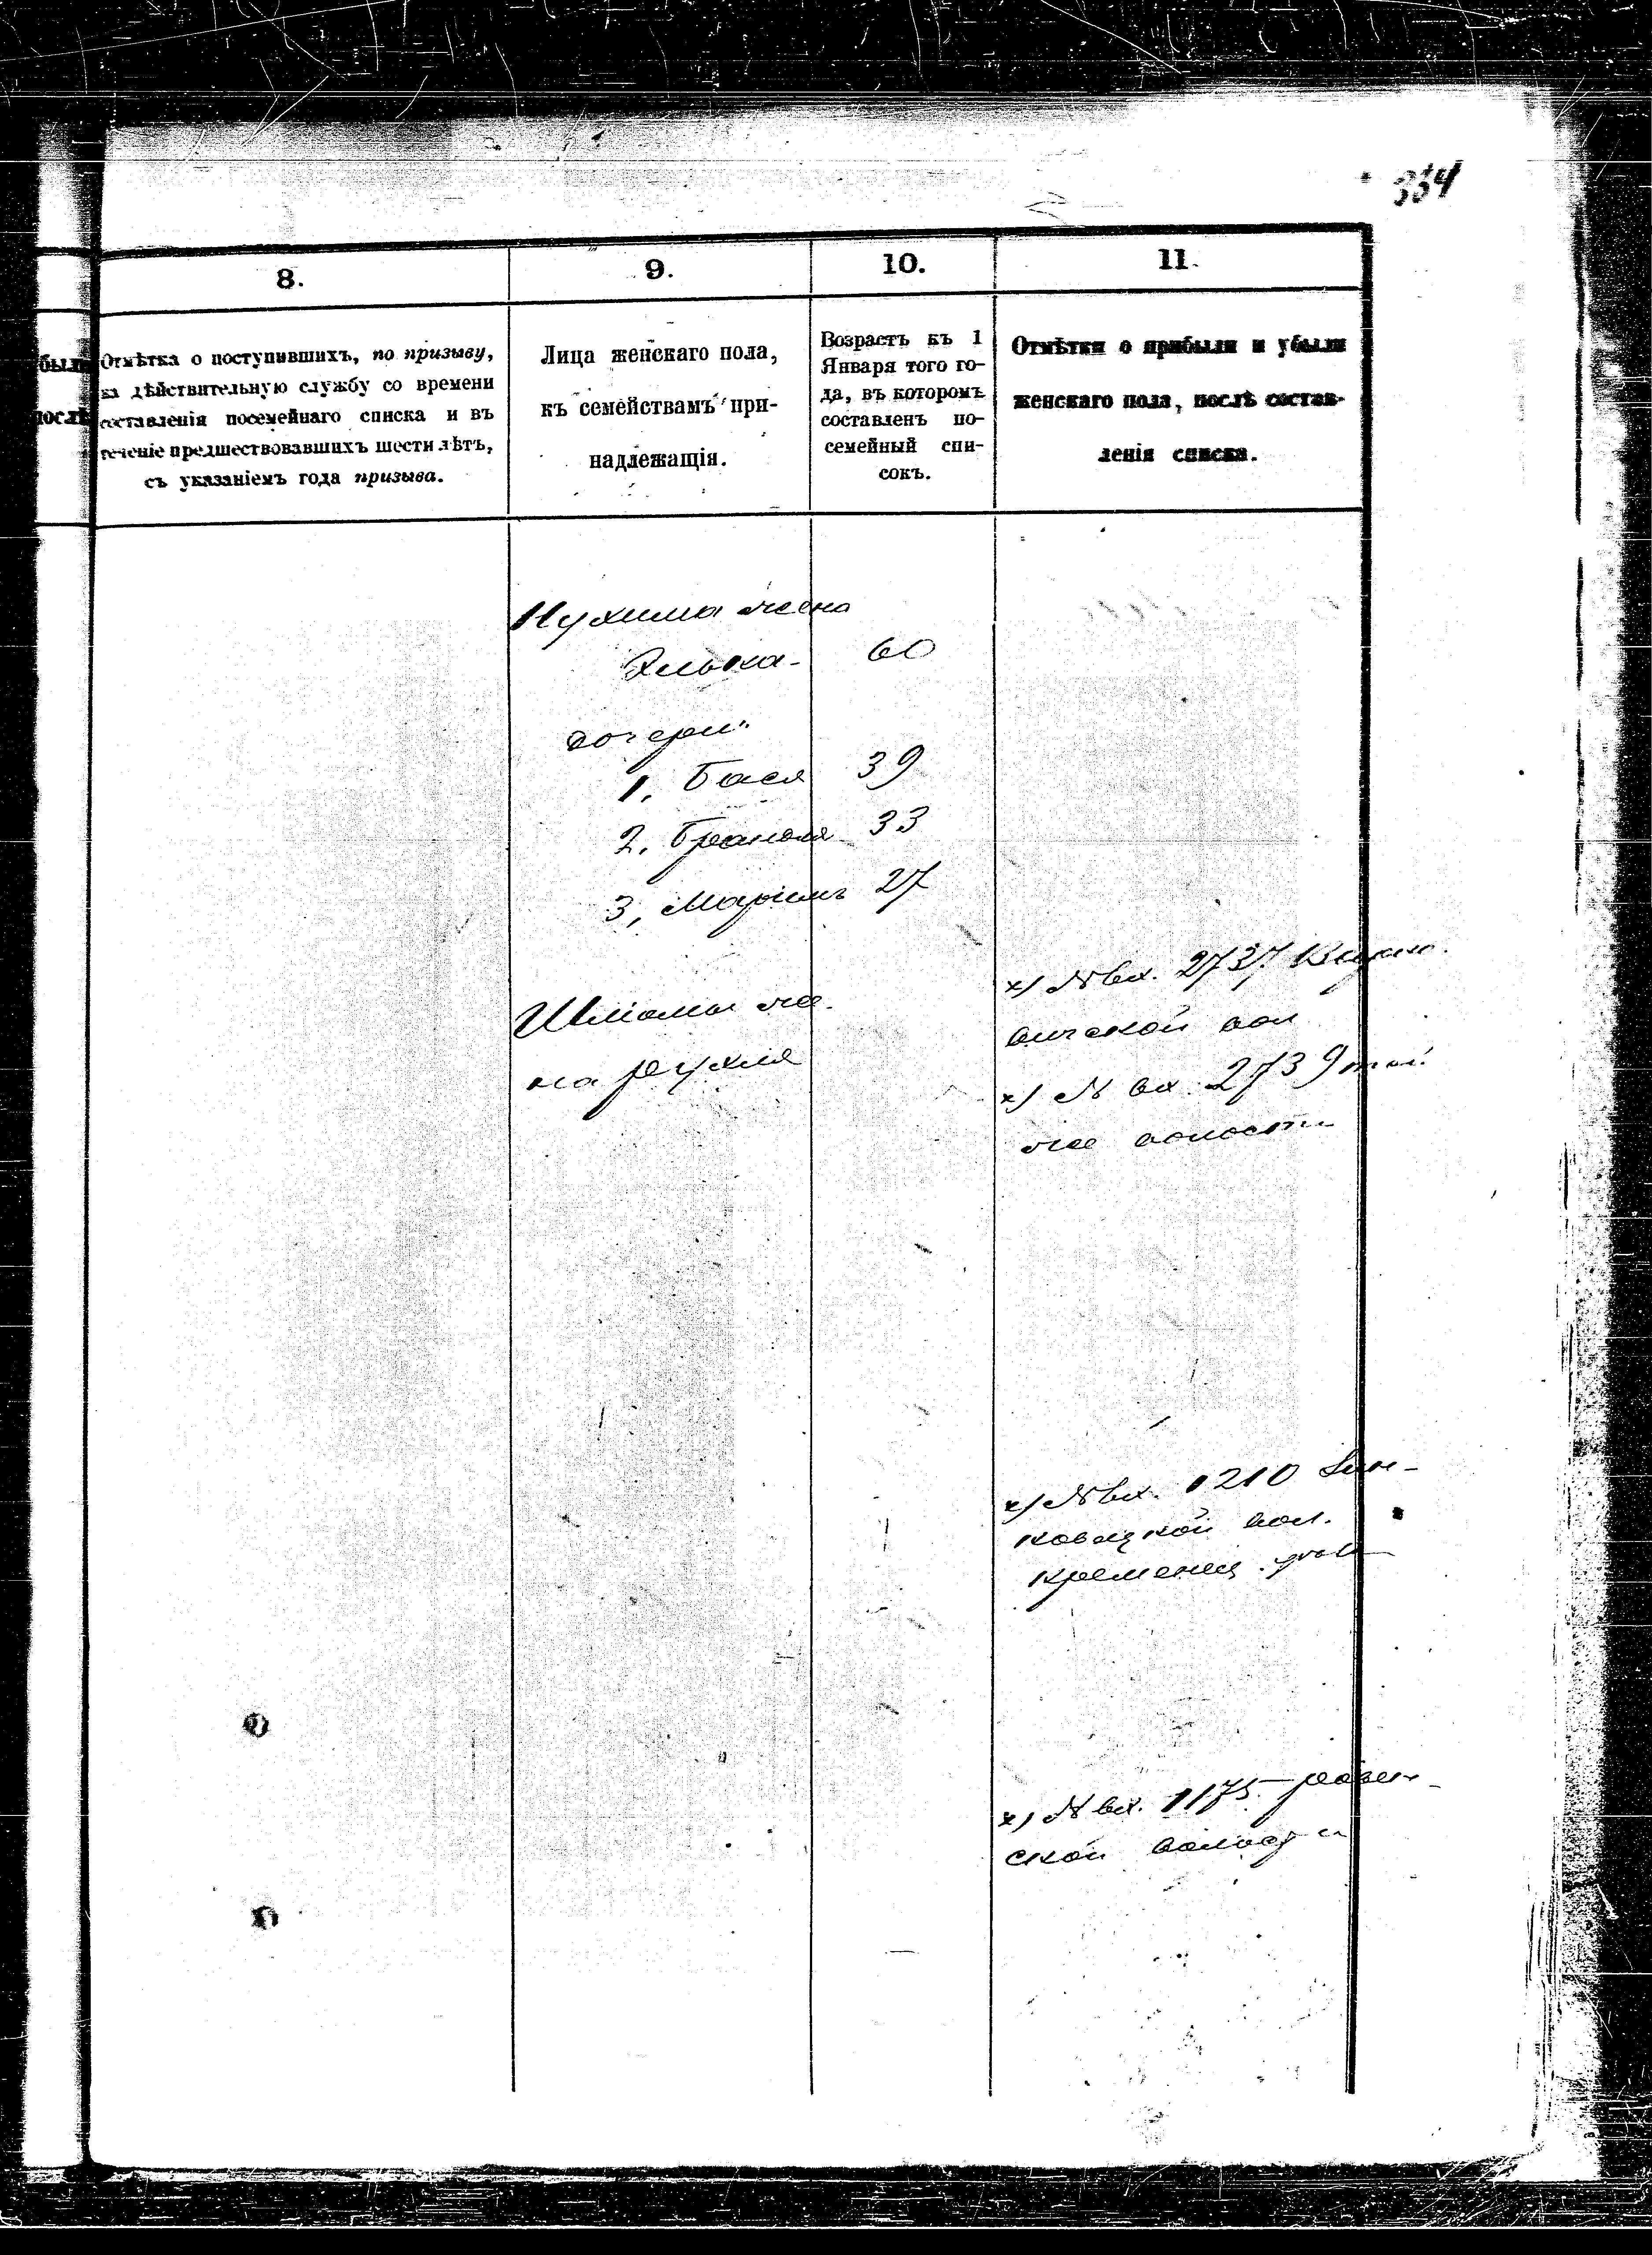 334
8.
9.
10.
11.
Отмѣтка о поступившихъ, по призыву,
на дѣйствительную службу со времени
составленія посемейнаго списка и въ
теченіе предшествовавшихъ шести лѣтъ,
съ указаніемъ года призыва.
Лица женскаго пола,
къ семействамъ при-
надлежащія.
Возрастъ къ 1
Января того го-
да, въ которомъ
составленъ по-
семейный спи-
сокъ.
Отмѣтки о прибыли и убыли
женскаго пола, послѣ состав-
ленія списка.
Нухима жена
60
дочери
1, Бася 39
2, 33
3, Марьимъ 27
Шліомы же-
на Рухля
х) № вх. 2737
вичской вол
х) № вх. 2739 той
же волости
х) № вх. 1210
ковецкой вол.
Кременец. уез
х) № вх. 1175 Ровен-
ской волости